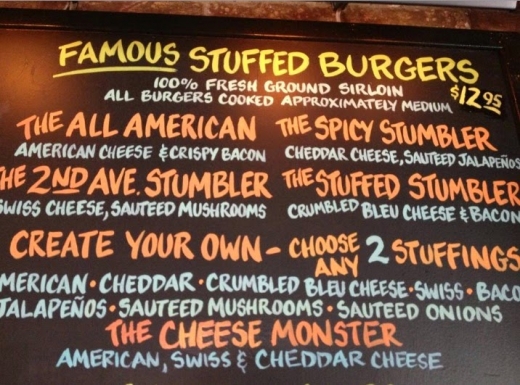 FAMOUS STUFFED BURGERS
100% FRESH GROUND SIRLOIN
ALL BURGERS COOKED APPROXIMATELY MEDIUM
$12.95
THE ALL AMERICAN
AMERICAN CHEESE & CRISPY BACON
THE SPICY STUMBLER
CHEDDAR CHEESE, SAUTEED JALAPEÑOS
THE 2ND AVE. STUMBLER
SWISS CHEESE, SAUTEED MUSHROOMS
THE STUFFED STUMBLER
CRUMBLED BLEU CHEESE & BACON
CREATE YOUR OWN - CHOOSE ANY 2 STUFFINGS
MERICAN • CHEDDAR • CRUMBLED BLEU CHEESE • SWISS • BACO
JALAPEÑOS • SAUTEED MUSHROOMS • SAUTEED ONIONS
THE CHEESE MONSTER
AMERICAN, SWISS & CHEDDAR CHEESE